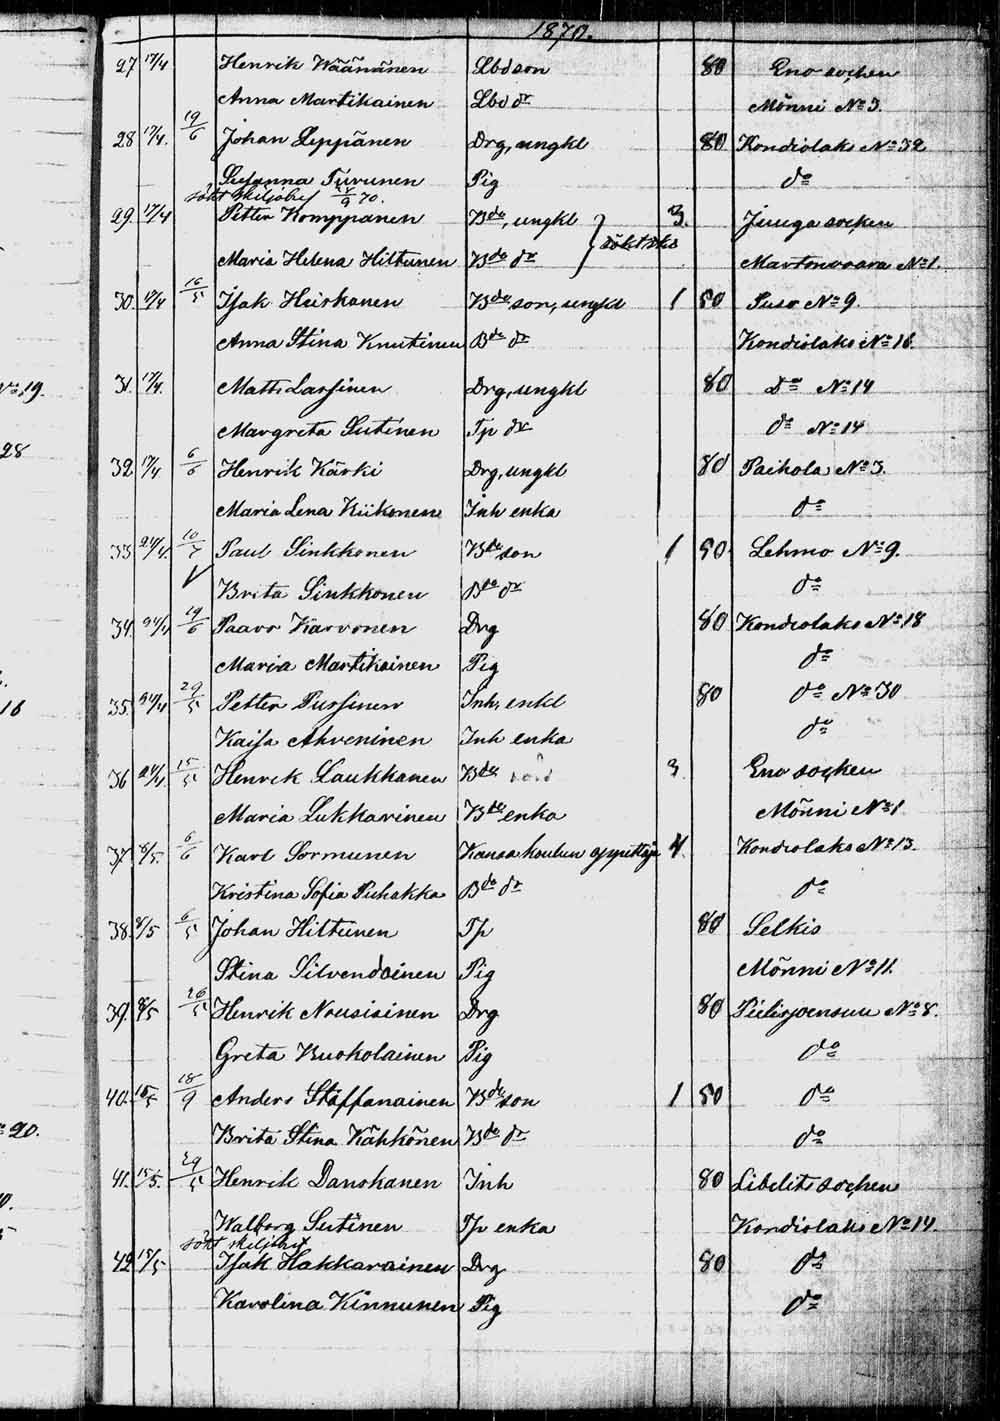 1870.
27 17/4 Henrik Wäänänen Lbdson 80 Eno socken
Anna Martikainen Lbd dr Mönni No 3.
28 17/4. 19/6 Johan Leppänen Drg, ungkl 80 Kondiolaks No 32
Susanna Turunen Pig do
sökt skiljobref 70.
29. 17/4 Petter Komppanen Bde, ungkl 3. Juuga socken
sökt
Maria Helena Hiltunen Bde dr Martonvaara No 1.
30. 17/4 16/5 Isak Heiskanen Bde son, ungkl 1 50 Puso No 9.
Anna Stina Knutinen Bde dr Kondiolaks No 16.
No 19. 31. 17/4. Matts Lassinen Drg, ungkl 80 Do No 14
Margreta Sutinen Tp dr do No 14
28 32 17/4 6/6 Henrik Kärki Drg, ungkl 80 Paihola No 3.
Maria Lena Kiikonen Inh enka do
33 24/4. 10/7 Paul Sinkkonen Bde son 1 50 Lehmo No 9.
Brita Sinkkonen Bde dr do
34. 24/4 19/6 Paavo Karvonen Drg 80 Kondiolaks No 18
Maria Martikainen Pig do
16 35. 24/4 29/5 Petter Pursinen Inh. enkl 80 do No 30
Kaisa Ahveninen Inh enka do
36 24/4 15/5 Henrik Laukkanen Bde 3 Eno socken
Maria Lukkarinen Bde enka Mönni No 1
37 8/5. 6/6 Karl Sormunen Kansakoulun opettaja 4. Kondiolaks No 13.
Kristina Sofia Puhakka Bde dr do
38. 8/5 6/5 Johan Hiltunen Tp 80 Selkis
Stina Silvendoinen Pig Mönni No 11.
39. 8/5 26/5 Henrik Nousiainen Drg 80 Pielisjoensuu No 8.
Greta Kuokolainen Pig do
40. 15/5 18/9 Anders Staffanainen Bde son 1 50 do
20. Brita Stina Kähkönen Bde dr do
41. 15/5. 29/5 Henrik Danskanen Inh 80 Libelits socken
Walborg Sutinen Tp enka Kondiolaks No 14.
sökt skiljobref
42 15/5 Isak Hakkarainen Drg 80 do
Karolina Kinnunen Pig do